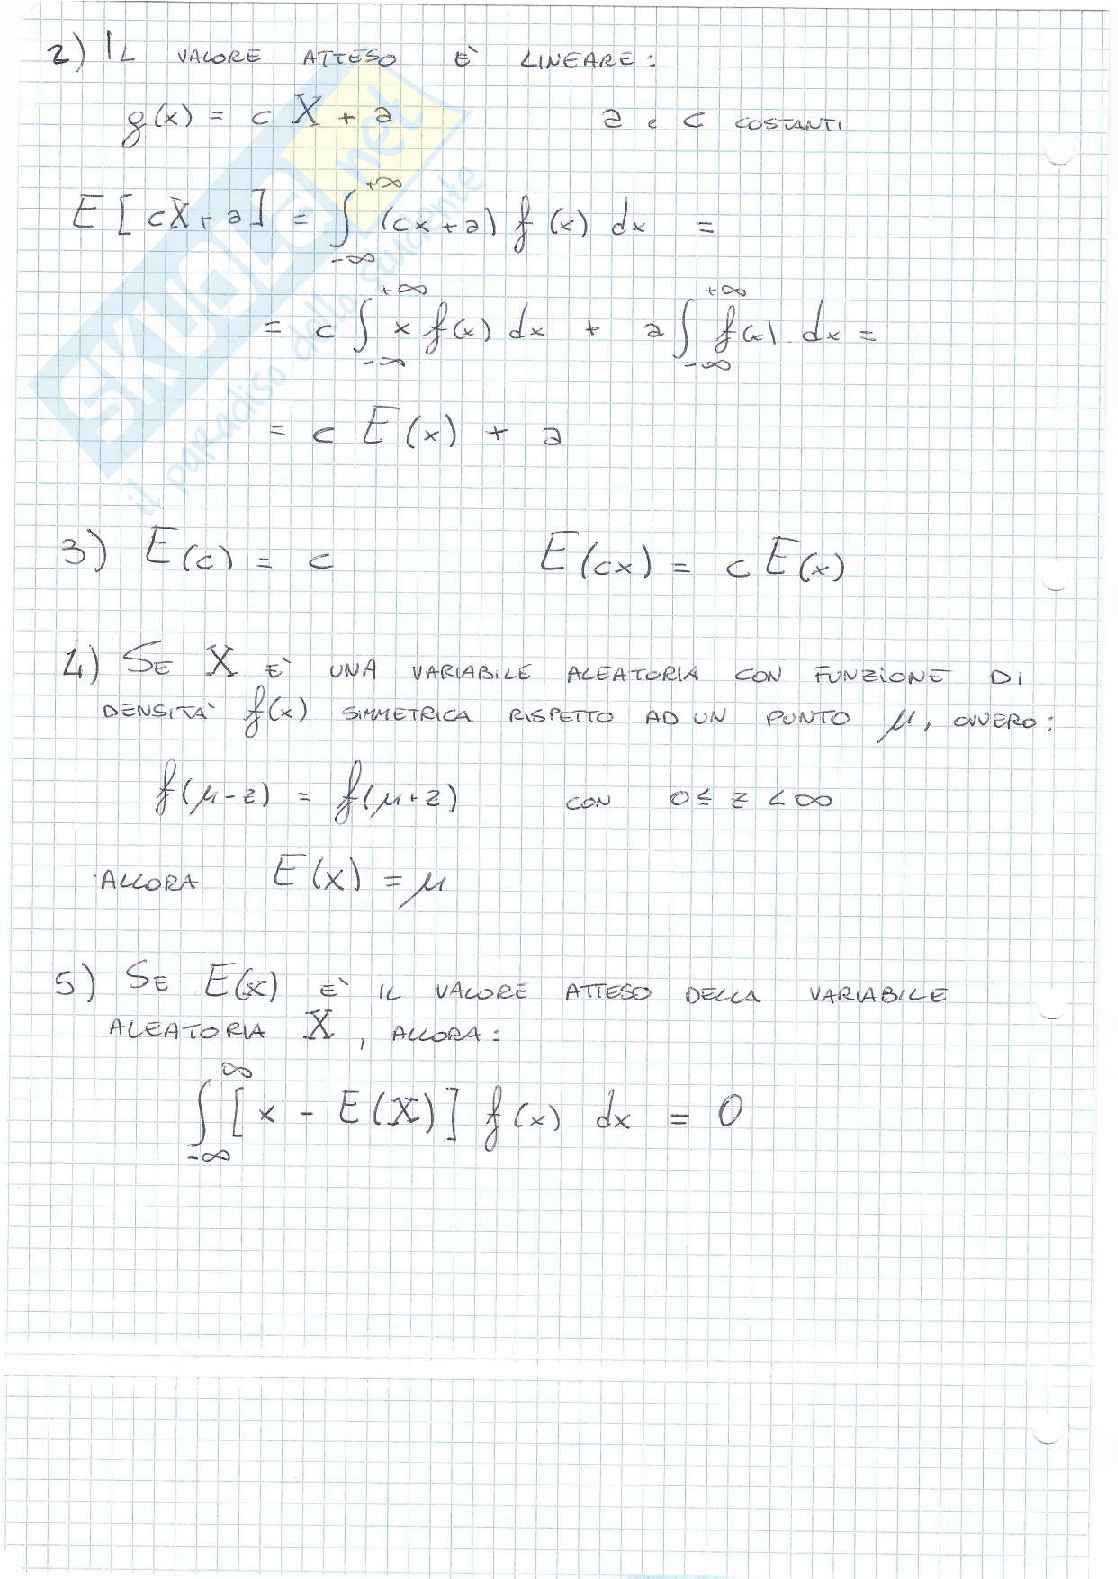 2) IL VALORE ATTESO È LINEARE:
g(x) = c X + a    a e c COSTANTI
E[cX+a] = ∫_{-∞}^{+∞} (cx+a) f(x) dx =
= c ∫_{-∞}^{+∞} x f(x) dx + a ∫_{-∞}^{+∞} f(x) dx =
= c E(x) + a
3) E(c) = c    E(cx) = c E(x)
4) SE X È UNA VARIABILE ALEATORIA CON FUNZIONE DI
DENSITÀ f(x) SIMMETRICA RISPETTO AD UN PUNTO μ, OVVERO:
f(μ-z) = f(μ+z)    CON 0 ≤ z < ∞
ALLORA E(x) = μ
5) SE E(x) È IL VALORE ATTESO DELLA VARIABILE
ALEATORIA X, ALLORA:
∫_{-∞}^{∞} [x - E(X)] f(x) dx = 0
SKUOLA.net
il paradiso dello studente